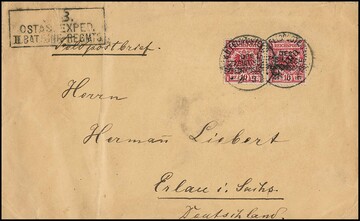 3.
OSTAS. EXPED.
II. BAT. INF. REGMTS
Feldpostbrief.
10 10
Herrn
Hermann Liebert
Erlau i. Sachs.
Deutschland.